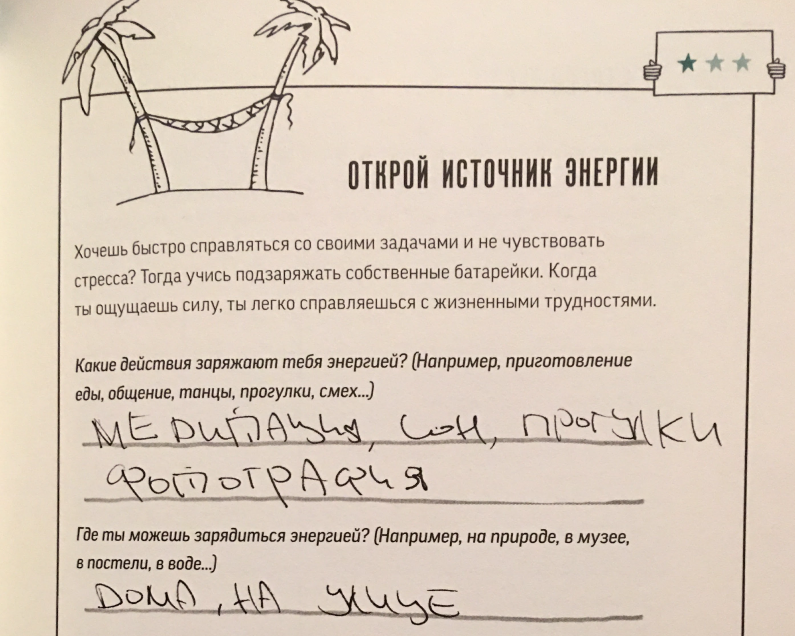 ОТКРОЙ ИСТОЧНИК ЭНЕРГИИ
Хочешь быстро справляться со своими задачами и не чувствовать
стресса? Тогда учись подзаряжать собственные батарейки. Когда
ты ощущаешь силу, ты легко справляешься с жизненными трудностями.
Какие действия заряжают тебя энергией? (Например, приготовление
еды, общение, танцы, прогулки, смех...)
МЕДИТАЦИЯ, СОН, ПРОГУЛКИ
ФОТОГРАФИЯ
Где ты можешь зарядиться энергией? (Например, на природе, в музее,
в постели, в воде...)
ДОМА, НА УЛИЦЕ